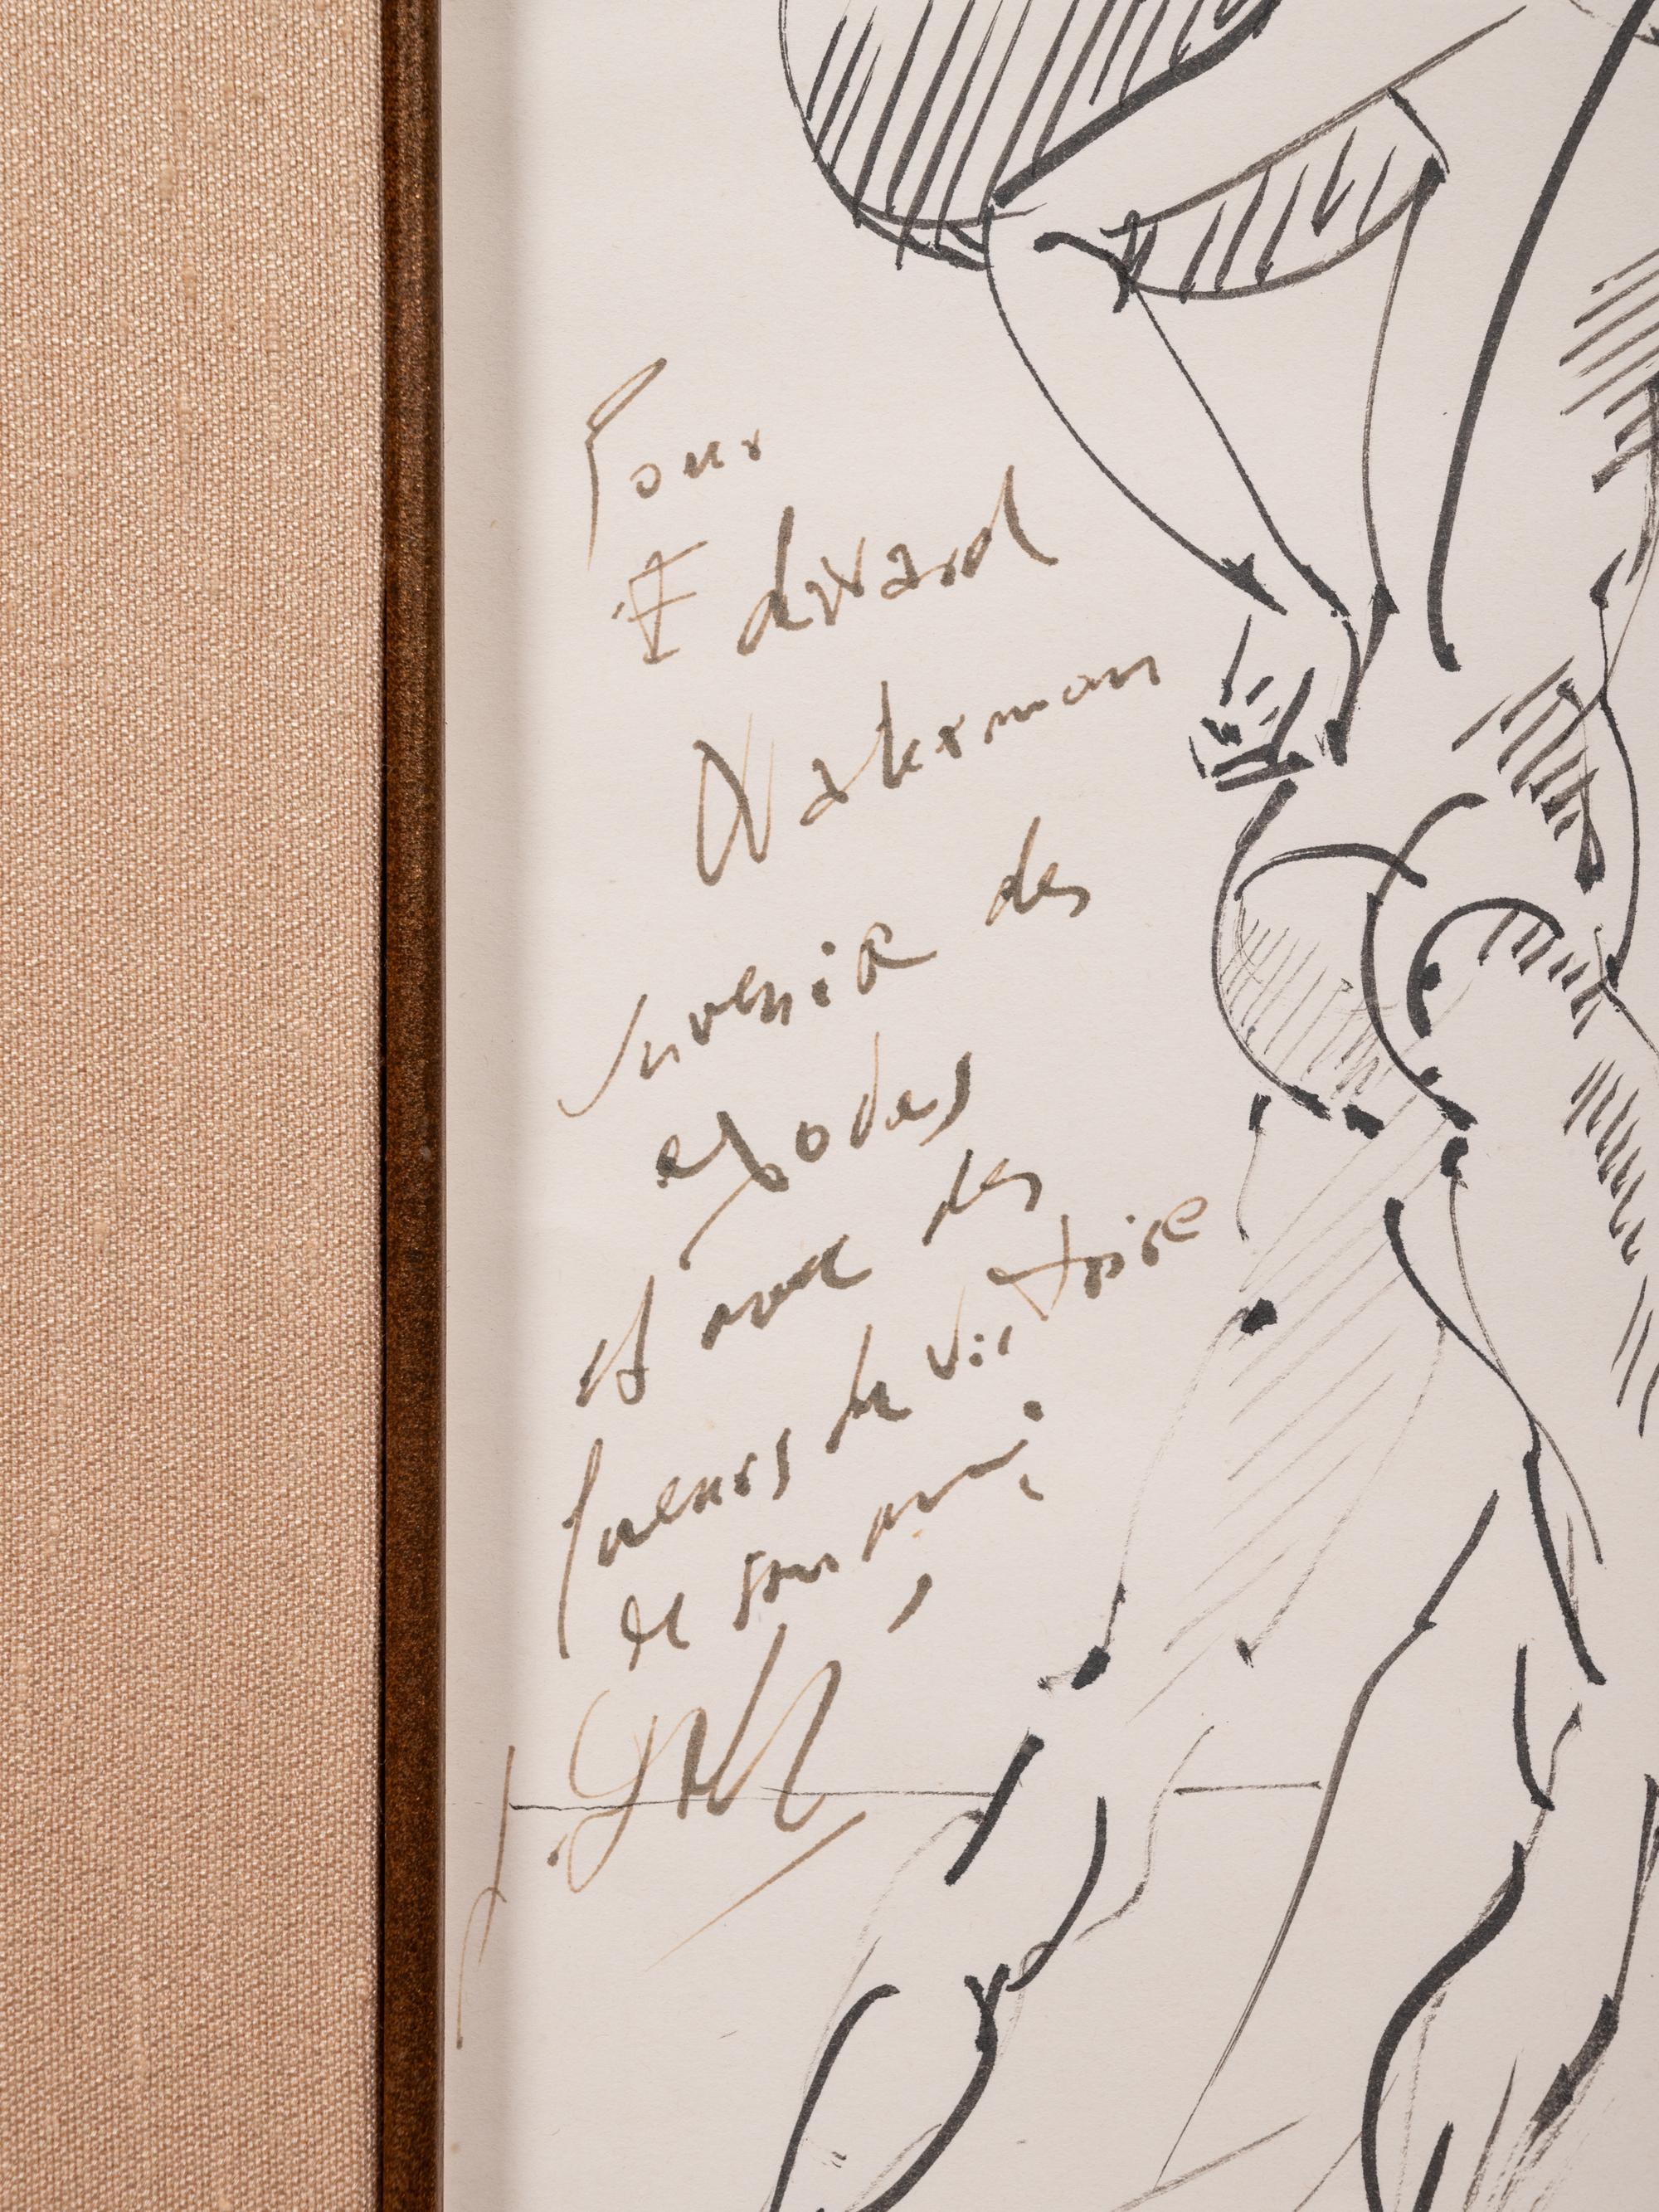 Pour
Edward
Wakerman
suvenir des
epodes
et avec des
fueurs de victoire
de son ami